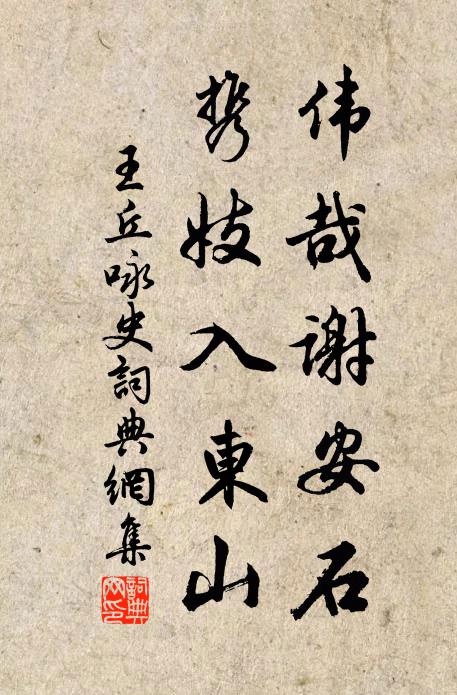 伟哉谢安石
携妓入東山
王丘咏史詞典網集
詞典网印